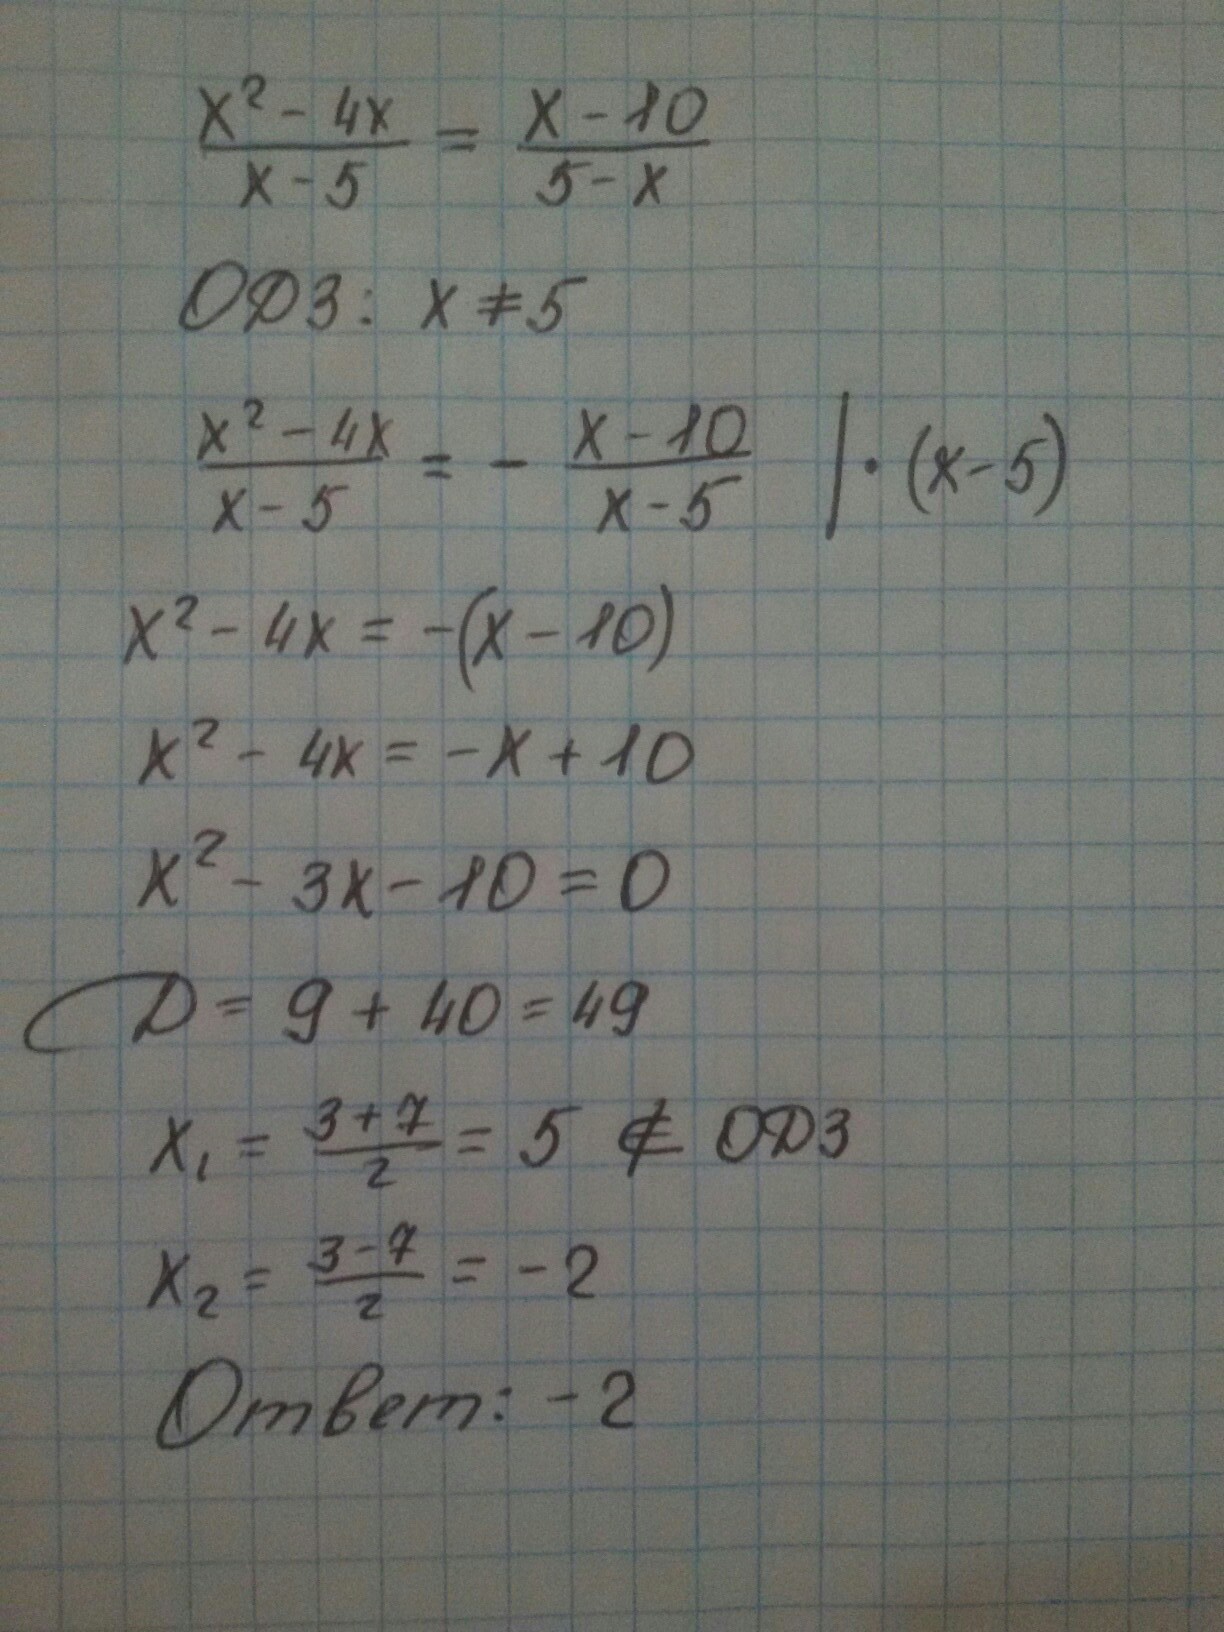 x² - 4x / x - 5 = x - 10 / 5 - x
ОДЗ: x ≠ 5
x² - 4x / x - 5 = - x - 10 / x - 5 | · (x - 5)
x² - 4x = -(x - 10)
x² - 4x = -x + 10
x² - 3x - 10 = 0
D = 9 + 40 = 49
x₁ = 3 + 7 / 2 = 5 ∉ ОДЗ
x₂ = 3 - 7 / 2 = -2
Ответ: -2